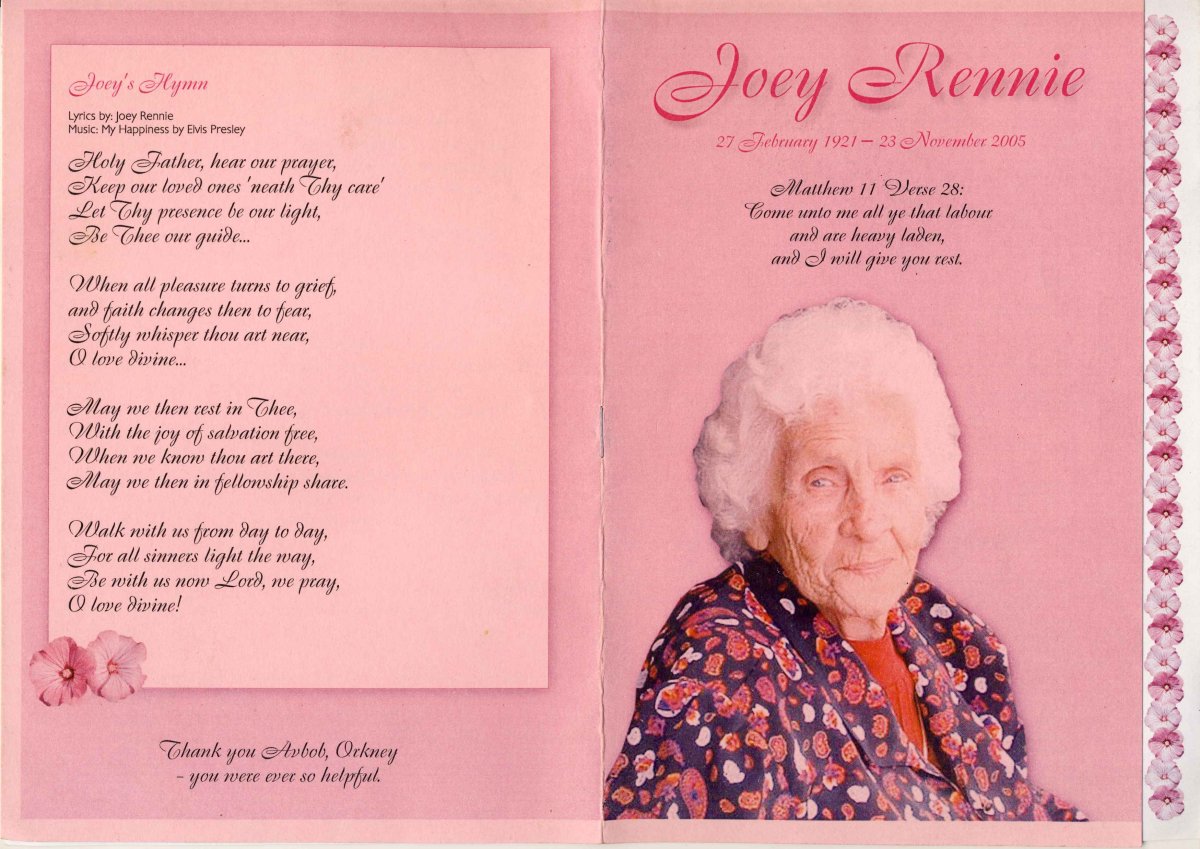 Joey's Hymn
Lyrics by: Joey Rennie
Music: My Happiness by Elvis Presley
Holy Father, hear our prayer,
Keep our loved ones 'neath Thy care'
Let Thy presence be our light,
Be Thee our guide...
When all pleasure turns to grief,
and faith changes then to fear,
Softly whisper thou art near,
O love divine...
May we then rest in Thee,
With the joy of salvation free,
When we know thou art there,
May we then in fellowship share.
Walk with us from day to day,
For all sinners light the way,
Be with us now Lord, we pray,
O love divine!
Thank you Avbob, Orkney
- you were ever so helpful.
Joey Rennie
27 February 1921 – 23 November 2005
Matthew 11 Verse 28:
Come unto me all ye that labour
and are heavy laden,
and I will give you rest.